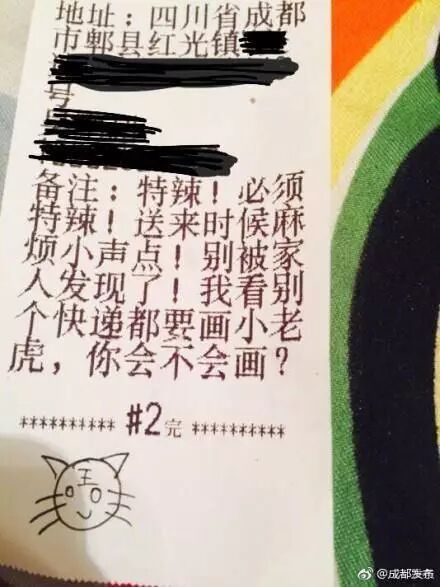 地址：四川省成都
市郫县红光镇
号
备注：特辣！必须
特辣！送来时候麻
烦小声点！别被家
人发现了！我看别
个快递都要画小老
虎，你会不会画？
********** #2完 **********
王
@成都发布